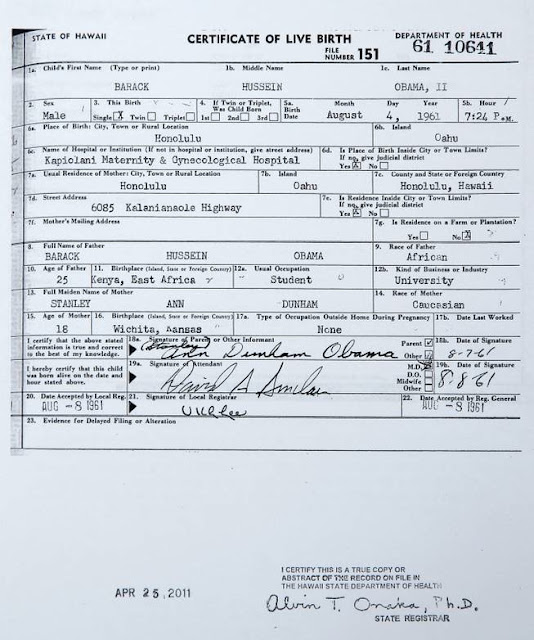 STATE OF HAWAII CERTIFICATE OF LIVE BIRTH DEPARTMENT OF HEALTH
FILE NUMBER 151 61 10641
1a. Child's First Name (Type or print) 1b. Middle Name 1c. Last Name
BARACK HUSSEIN OBAMA, II
2. Sex 3. This Birth 4. If Twin or Triplet, Was Child Born 5a. Birth Date Month Day Year 5b. Hour
Male Single X Twin Triplet 1st 2nd 3rd August 4, 1961 7:24 P.M.
6a. Place of Birth: City, Town or Rural Location 6b. Island
Honolulu Oahu
6c. Name of Hospital or Institution (If not in hospital or institution, give street address) 6d. Is Place of Birth Inside City or Town Limits?
If no, give judicial district
Kapiolani Maternity & Gynecological Hospital Yes X No
7a. Usual Residence of Mother: City, Town or Rural Location 7b. Island 7c. County and State or Foreign Country
Honolulu Oahu Honolulu, Hawaii
7d. Street Address 7e. Is Residence Inside City or Town Limits?
If no, give judicial district
6085 Kalanianaole Highway Yes X No
7f. Mother's Mailing Address 7g. Is Residence on a Farm or Plantation?
Yes No X
8. Full Name of Father 9. Race of Father
BARACK HUSSEIN OBAMA African
10. Age of Father 11. Birthplace (Island, State or Foreign Country) 12a. Usual Occupation 12b. Kind of Business or Industry
25 Kenya, East Africa Student University
13. Full Maiden Name of Mother 14. Race of Mother
STANLEY ANN DUNHAM Caucasian
15. Age of Mother 16. Birthplace (Island, State or Foreign Country) 17a. Type of Occupation Outside Home During Pregnancy 17b. Date Last Worked
18 Wichita, Kansas None
I certify that the above stated information is true and correct to the best of my knowledge. 18a. Signature of Parent or Other Informant Parent Other 18b. Date of Signature
(Stanley) Ann Dunham Obama 8-7-61
I hereby certify that this child was born alive on the date and hour stated above. 19a. Signature of Attendant M.D. X D.O. Midwife Other 19b. Date of Signature
David A Sinclair 8-8-61
20. Date Accepted by Local Reg. 21. Signature of Local Registrar 22. Date Accepted by Reg. General
AUG -8 1961 U K L Lee AUG -8 1961
23. Evidence for Delayed Filing or Alteration
APR 25, 2011
I CERTIFY THIS IS A TRUE COPY OR
ABSTRACT OF THE RECORD ON FILE IN
THE HAWAII STATE DEPARTMENT OF HEALTH
Alvin T. Onaka, Ph.D.
STATE REGISTRAR